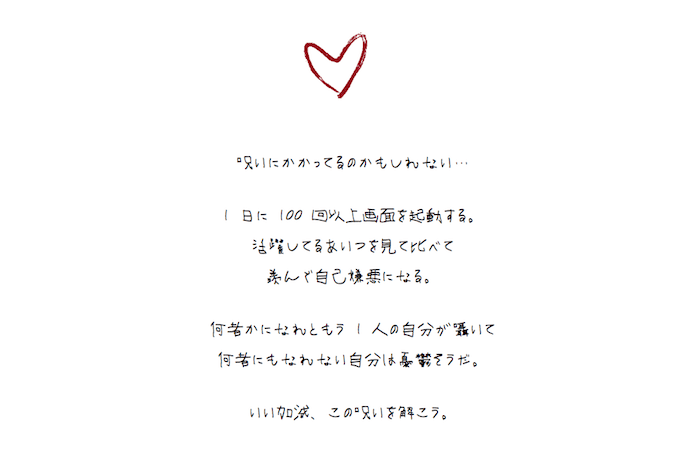 呪いにかかってるのかもしれない…
1日に100回以上画面を起動する。
活躍してるあいつを見て比べて
羨んで自己嫌悪になる。
何者かになれともう1人の自分が囁いて
何者にもなれない自分は憂鬱そうだ。
いい加減、この呪いを解こう。